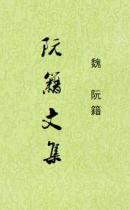 魏 阮籍
阮籍文集